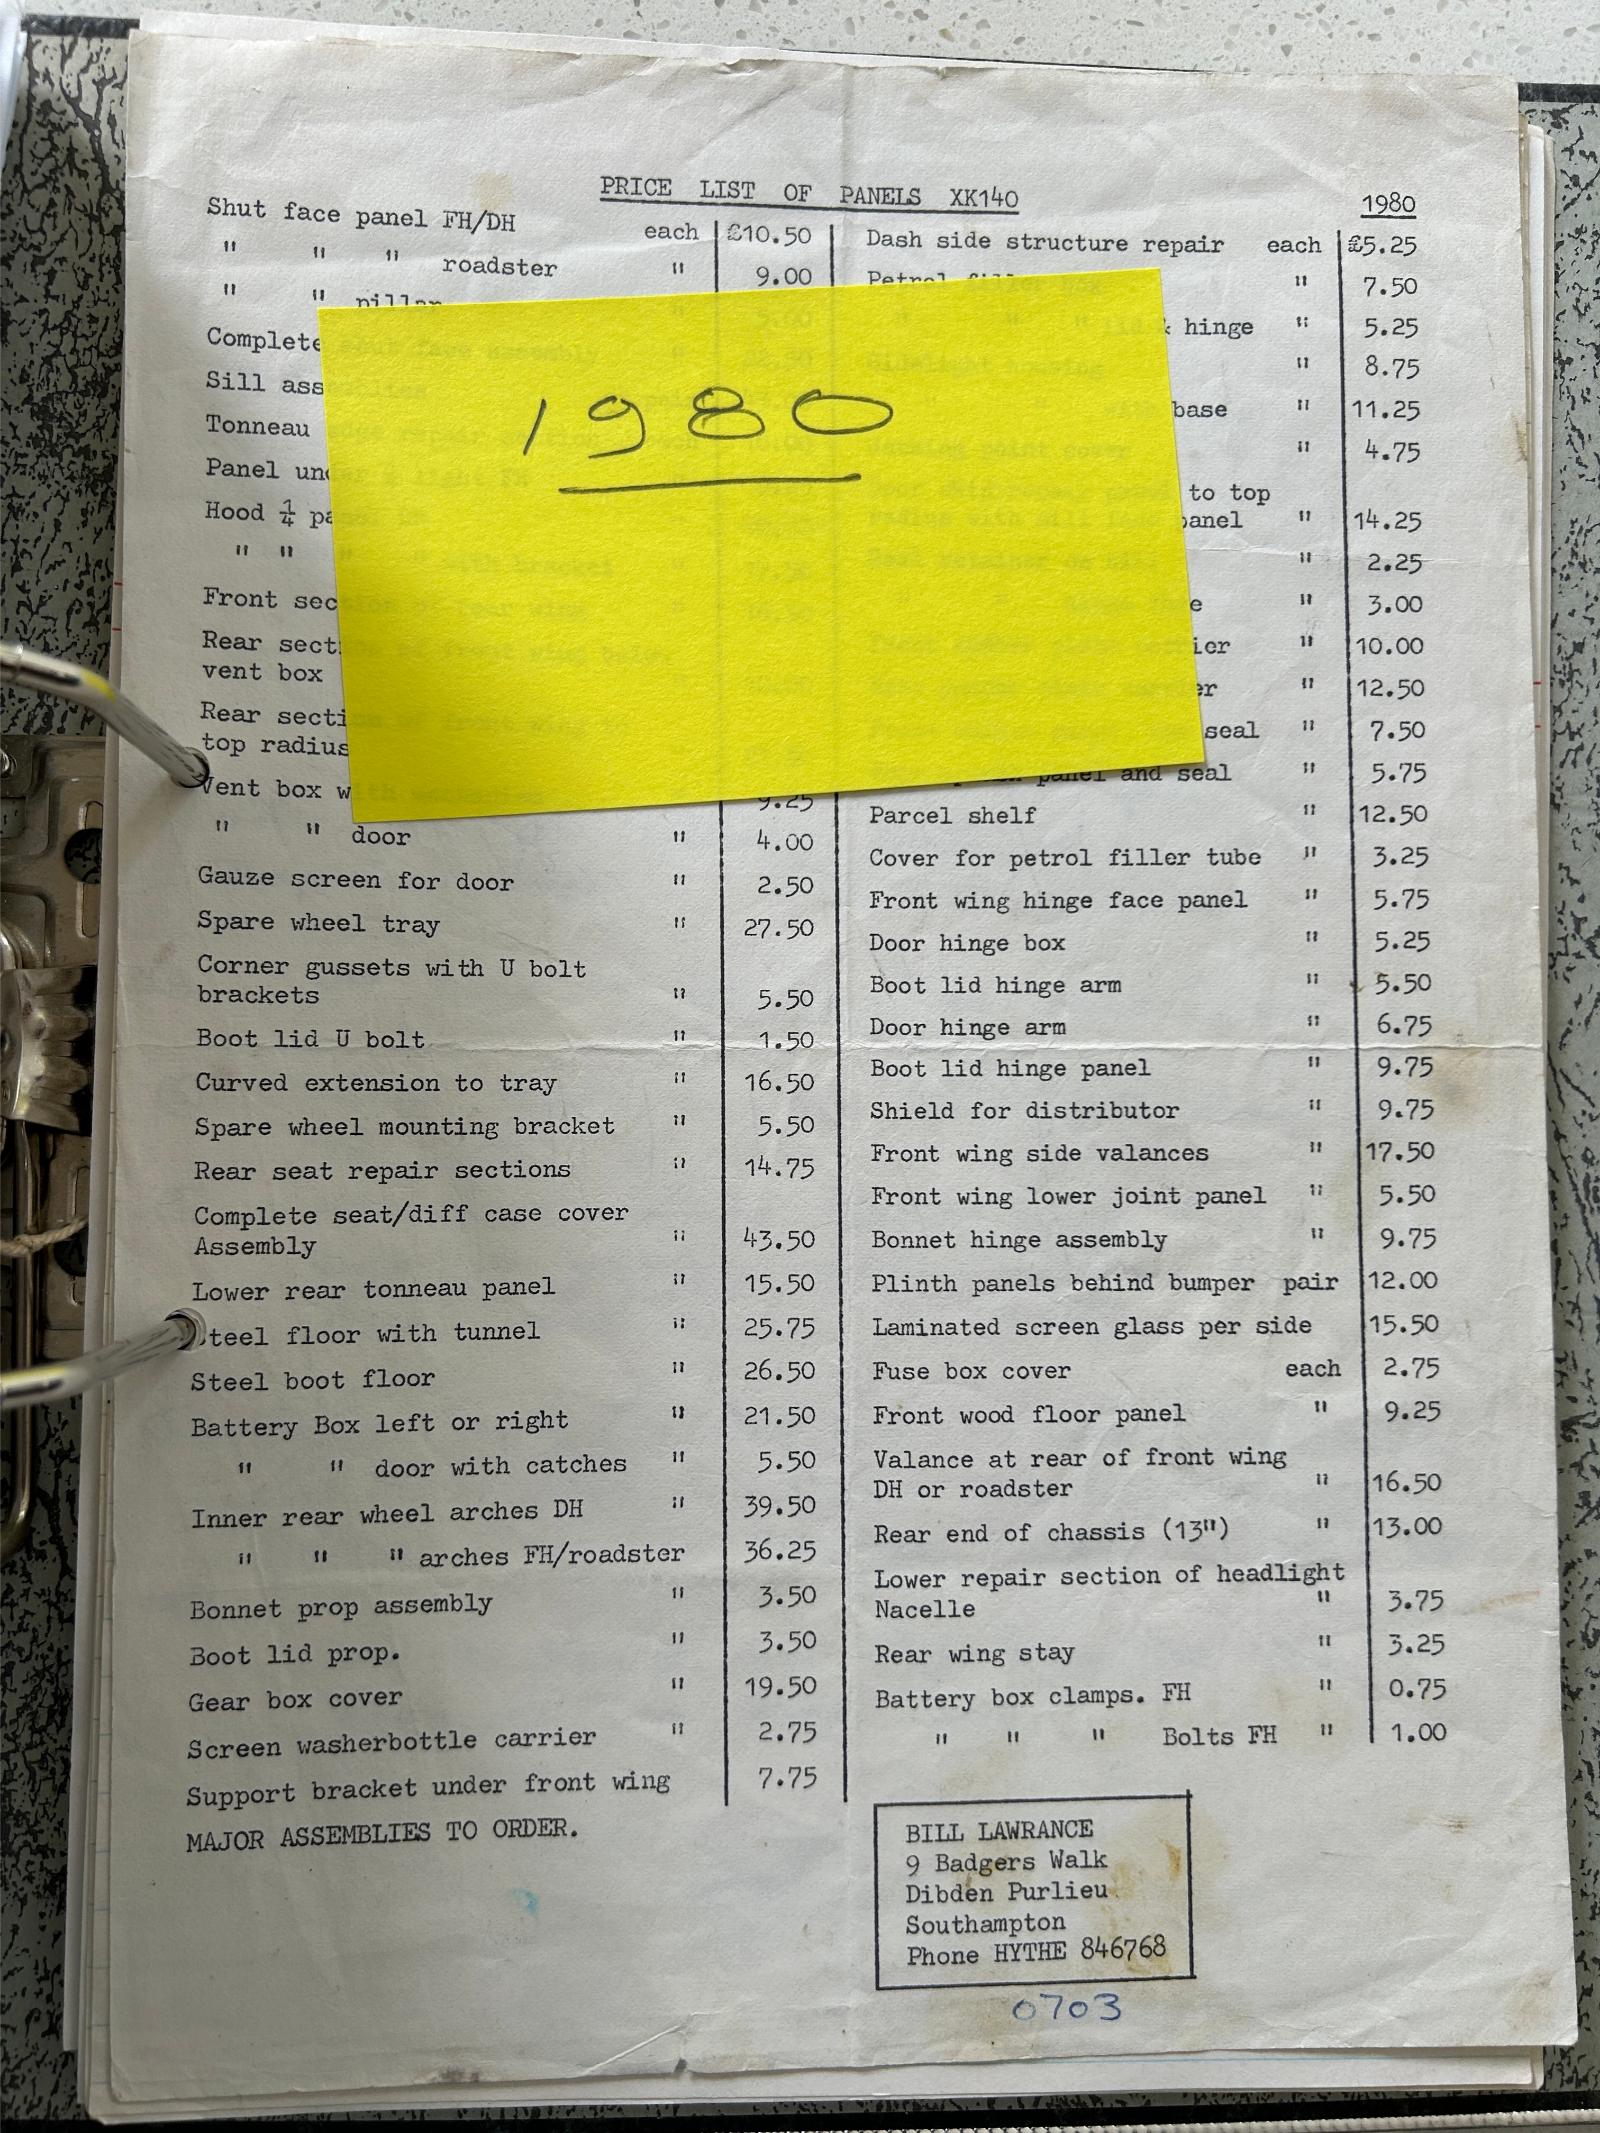 PRICE LIST OF PANELS XK140
1980
Shut face panel FH/DH each £10.50
" " " roadster " 9.00
" " pillar
Complete
Sill
Tonneau
Panel
Hood ¼
" "
Front
Rear
vent box
Rear
top radius
Vent box
9.25
" " door " 4.00
Gauze screen for door " 2.50
Spare wheel tray " 27.50
Corner gussets with U bolt
brackets " 5.50
Boot lid U bolt " 1.50
Curved extension to tray " 16.50
Spare wheel mounting bracket " 5.50
Rear seat repair sections " 14.75
Complete seat/diff case cover
Assembly " 43.50
Lower rear tonneau panel " 15.50
Steel floor with tunnel " 25.75
Steel boot floor " 26.50
Battery Box left or right " 21.50
" " door with catches " 5.50
Inner rear wheel arches DH " 39.50
" " " arches FH/roadster 36.25
Bonnet prop assembly " 3.50
Boot lid prop. " 3.50
Gear box cover " 19.50
Screen washerbottle carrier " 2.75
Support bracket under front wing 7.75
MAJOR ASSEMBLIES TO ORDER.
1980
Dash side structure repair each £5.25
Petrol " 7.50
& hinge " 5.25
" 8.75
base " 11.25
" 4.75
to top
panel " 14.25
" 2.25
" 3.00
" 10.00
" 12.50
seal " 7.50
panel and seal " 5.75
Parcel shelf " 12.50
Cover for petrol filler tube " 3.25
Front wing hinge face panel " 5.75
Door hinge box " 5.25
Boot lid hinge arm " 5.50
Door hinge arm " 6.75
Boot lid hinge panel " 9.75
Shield for distributor " 9.75
Front wing side valances " 17.50
Front wing lower joint panel " 5.50
Bonnet hinge assembly " 9.75
Plinth panels behind bumper pair 12.00
Laminated screen glass per side 15.50
Fuse box cover each 2.75
Front wood floor panel " 9.25
Valance at rear of front wing
DH or roadster " 16.50
Rear end of chassis (13") " 13.00
Lower repair section of headlight
Nacelle " 3.75
Rear wing stay " 3.25
Battery box clamps. FH " 0.75
" " " Bolts FH " 1.00
BILL LAWRANCE
9 Badgers Walk
Dibden Purlieu
Southampton
Phone HYTHE 846768
0703